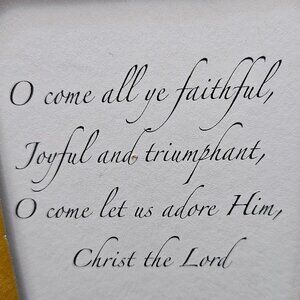 O come all ye faithful,
Joyful and triumphant,
O come let us adore Him,
Christ the Lord